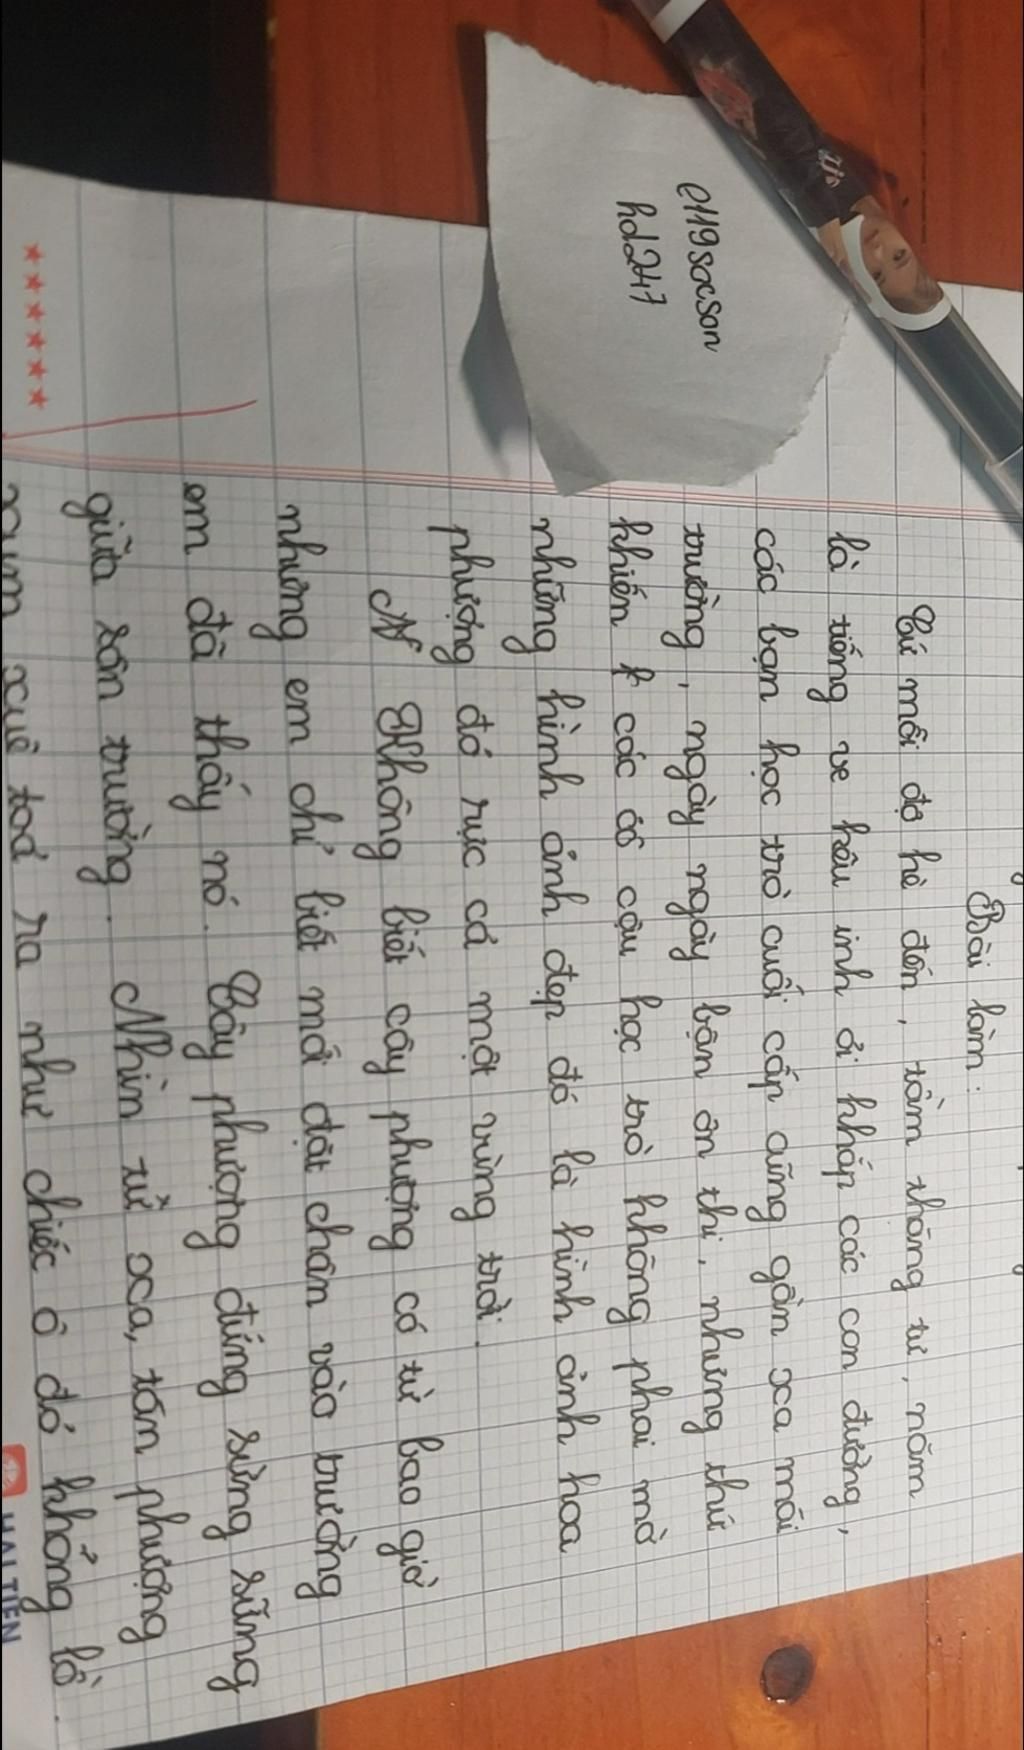 e119socson
hd247
Bài làm:
Cứ mỗi độ hè đến, tầm tháng tư, năm
là tiếng ve kêu inh ỏi khắp các con đường,
các bạn học trò cuối cấp cũng gần xa mái
trường, ngày ngày bận ôn thi, nhưng thứ
khiến các cô cậu học trò không phai mờ
những hình ảnh đẹp đó là hình ảnh hoa
phượng đỏ rực cả một vùng trời.
Không biết cây phượng có từ bao giờ
nhưng em chỉ biết mới đặt chân vào trường
em đã thấy nó. Cây phượng đứng sừng sững
giữa sân trường. Nhìn từ xa, tán phượng
xum xuê toả ra như chiếc ô đỏ khổng lồ.
HẢI TIẾN